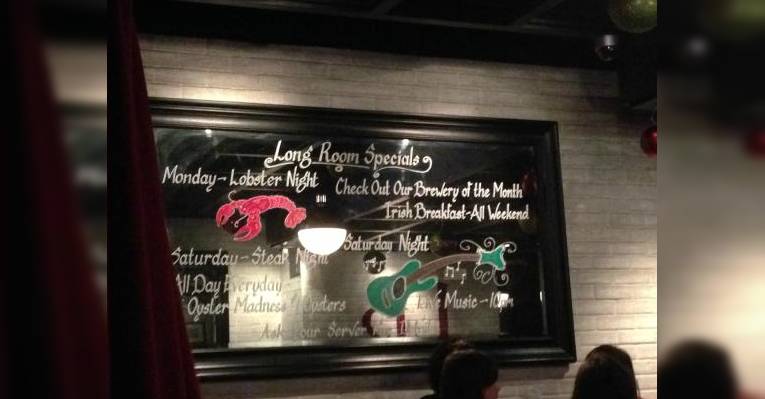 Long Room Specials
Monday - Lobster Night
Check Out Our Brewery of the Month
Irish Breakfast - All Weekend
Saturday - Steak Night
All Day Everyday -
Oyster Madness Oysters
Ask Your Server
Saturday Night
Live Music - 10pm